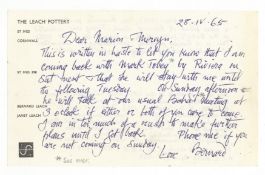 THE LEACH POTTERY
28-IV-65
ST IVES
CORNWALL
Dear Marion Mervyn,
This is written in haste to let you know that I am
coming back with Mark Tobey by Riviera on
Sat next & that he will stay with us until
the following Tuesday. On Sunday afternoon
he will talk at our usual Bahá'í meeting at
3 o'clock if either or both of you care to come.
I am in too much of a rush to make further
plans until I get back. Phone me if you
are not coming on Sunday.
Love Bernard
BERNARD LEACH
JANET LEACH
* See over.